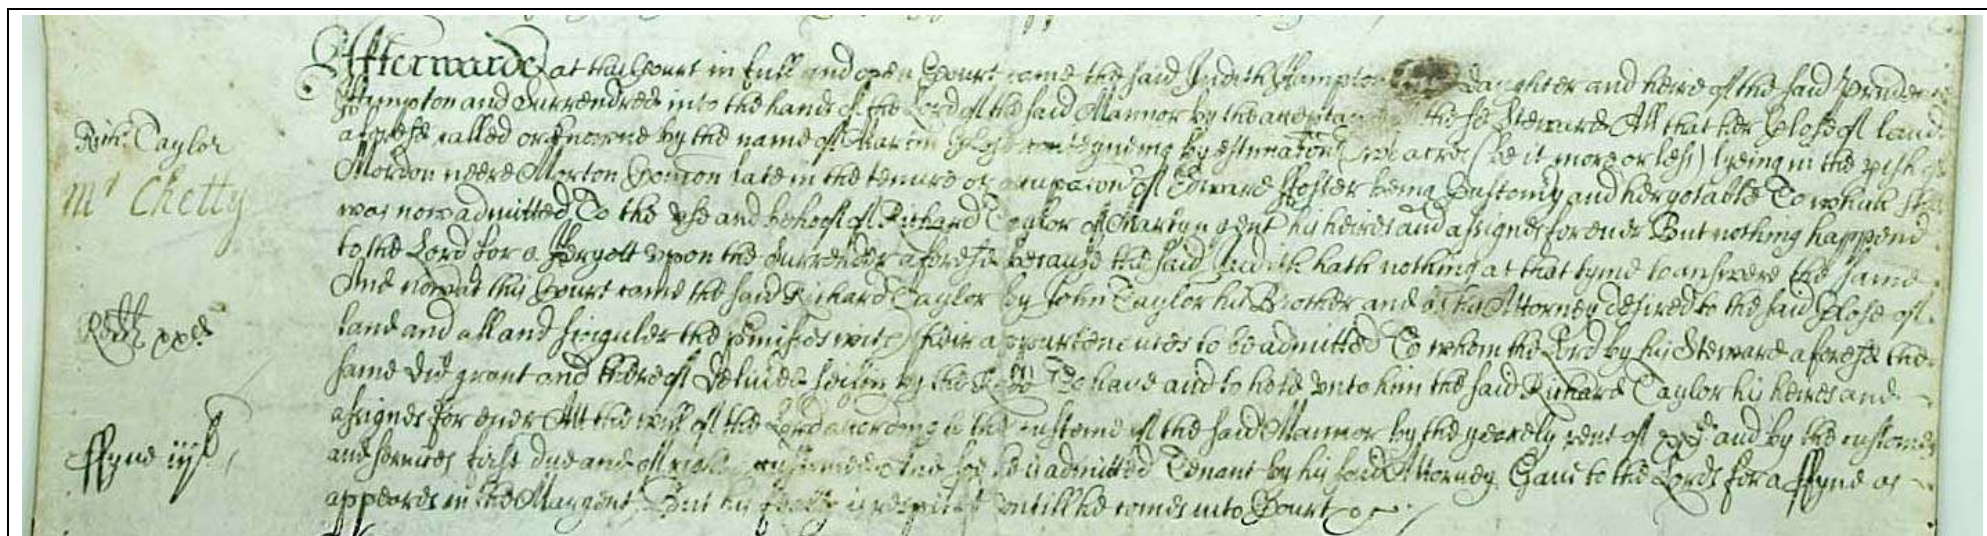 Afterwarde at this Court in full and open Court came the said Judith Hampton daughter and heire of the said
Hampton and surrendred into the hands of the Lord of the said Mannor by the the Steward All that her Close of land
aforesd called or knowne by the name of Martin Close conteyneing by estimacon acres (be it more or less) lyeing in the pish of
Mordon neere Morton Comon late in the tenure or occupacon of Edward ffoster being Customy and heryotable To which she
Rich: Taylor
was now admitted To the use and behoofe of Richard Taylor of Martyn gent his heires and assignes for ever But nothing happend
Mr Chetty
to the Lord for a Heryott upon the surrender aforesd because the said Judith hath nothing at that tyme to answere the same
And now at this Court came the said Richard Taylor by John Taylor his Brother and Attorney desired to the said Close of
Redd xxd
land and all and singuler the pmisses with their appurtenences to be admitted To whom the Lord by his Steward aforesd the
same did grant and thereof delived seisin by the Rodd To have and to hold unto him the said Richard Taylor his heires and
assignes for ever At the will of the Lord according to the custome of the said Mannor by the yearely rent of xxd and by the customes
ffyne iijl
and services first due and of right accustomed And soe he is admitted Tenant by his said Attorney Gave to the Lord for a ffyne as
appeares in the Margent But his fealty is respited untill he comes into Court